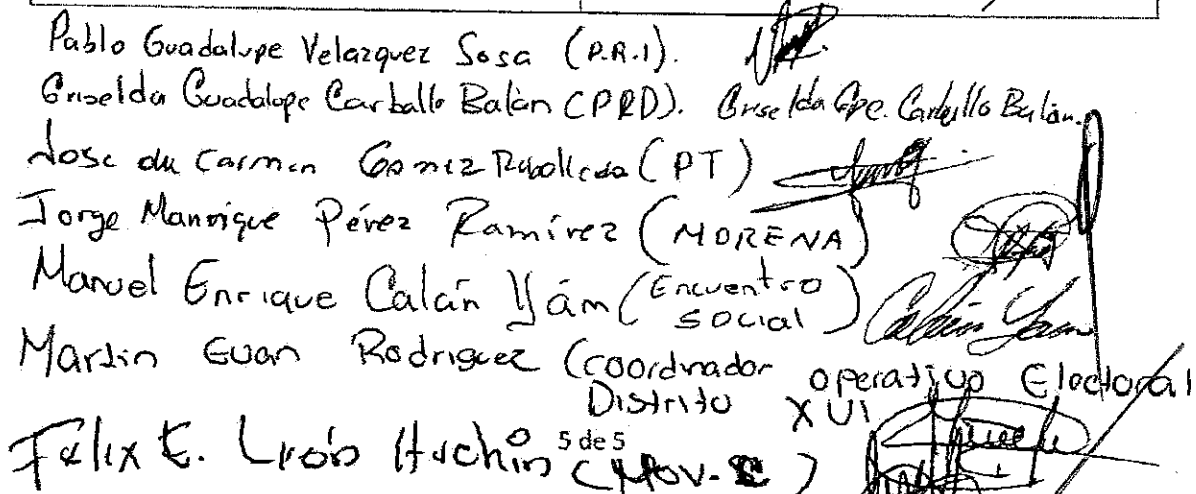 Pablo Guadalupe Velazquez Sosa (P.R.I).
Griselda Guadalupe Carballo Balán (PRD). Griselda Gpe. Carballo Balán.
Jose du Carmen Gomez Rebolleda (PT)
Jorge Manrique Pérez Ramírez (MORENA)
Manuel Enrique Calán Yám (Encuentro social) Calán Yam
Martin Euan Rodriguez (coordinador operativo Electoral
Distrito XVI
Felix E. Huchin (Mov. )
5 de 5